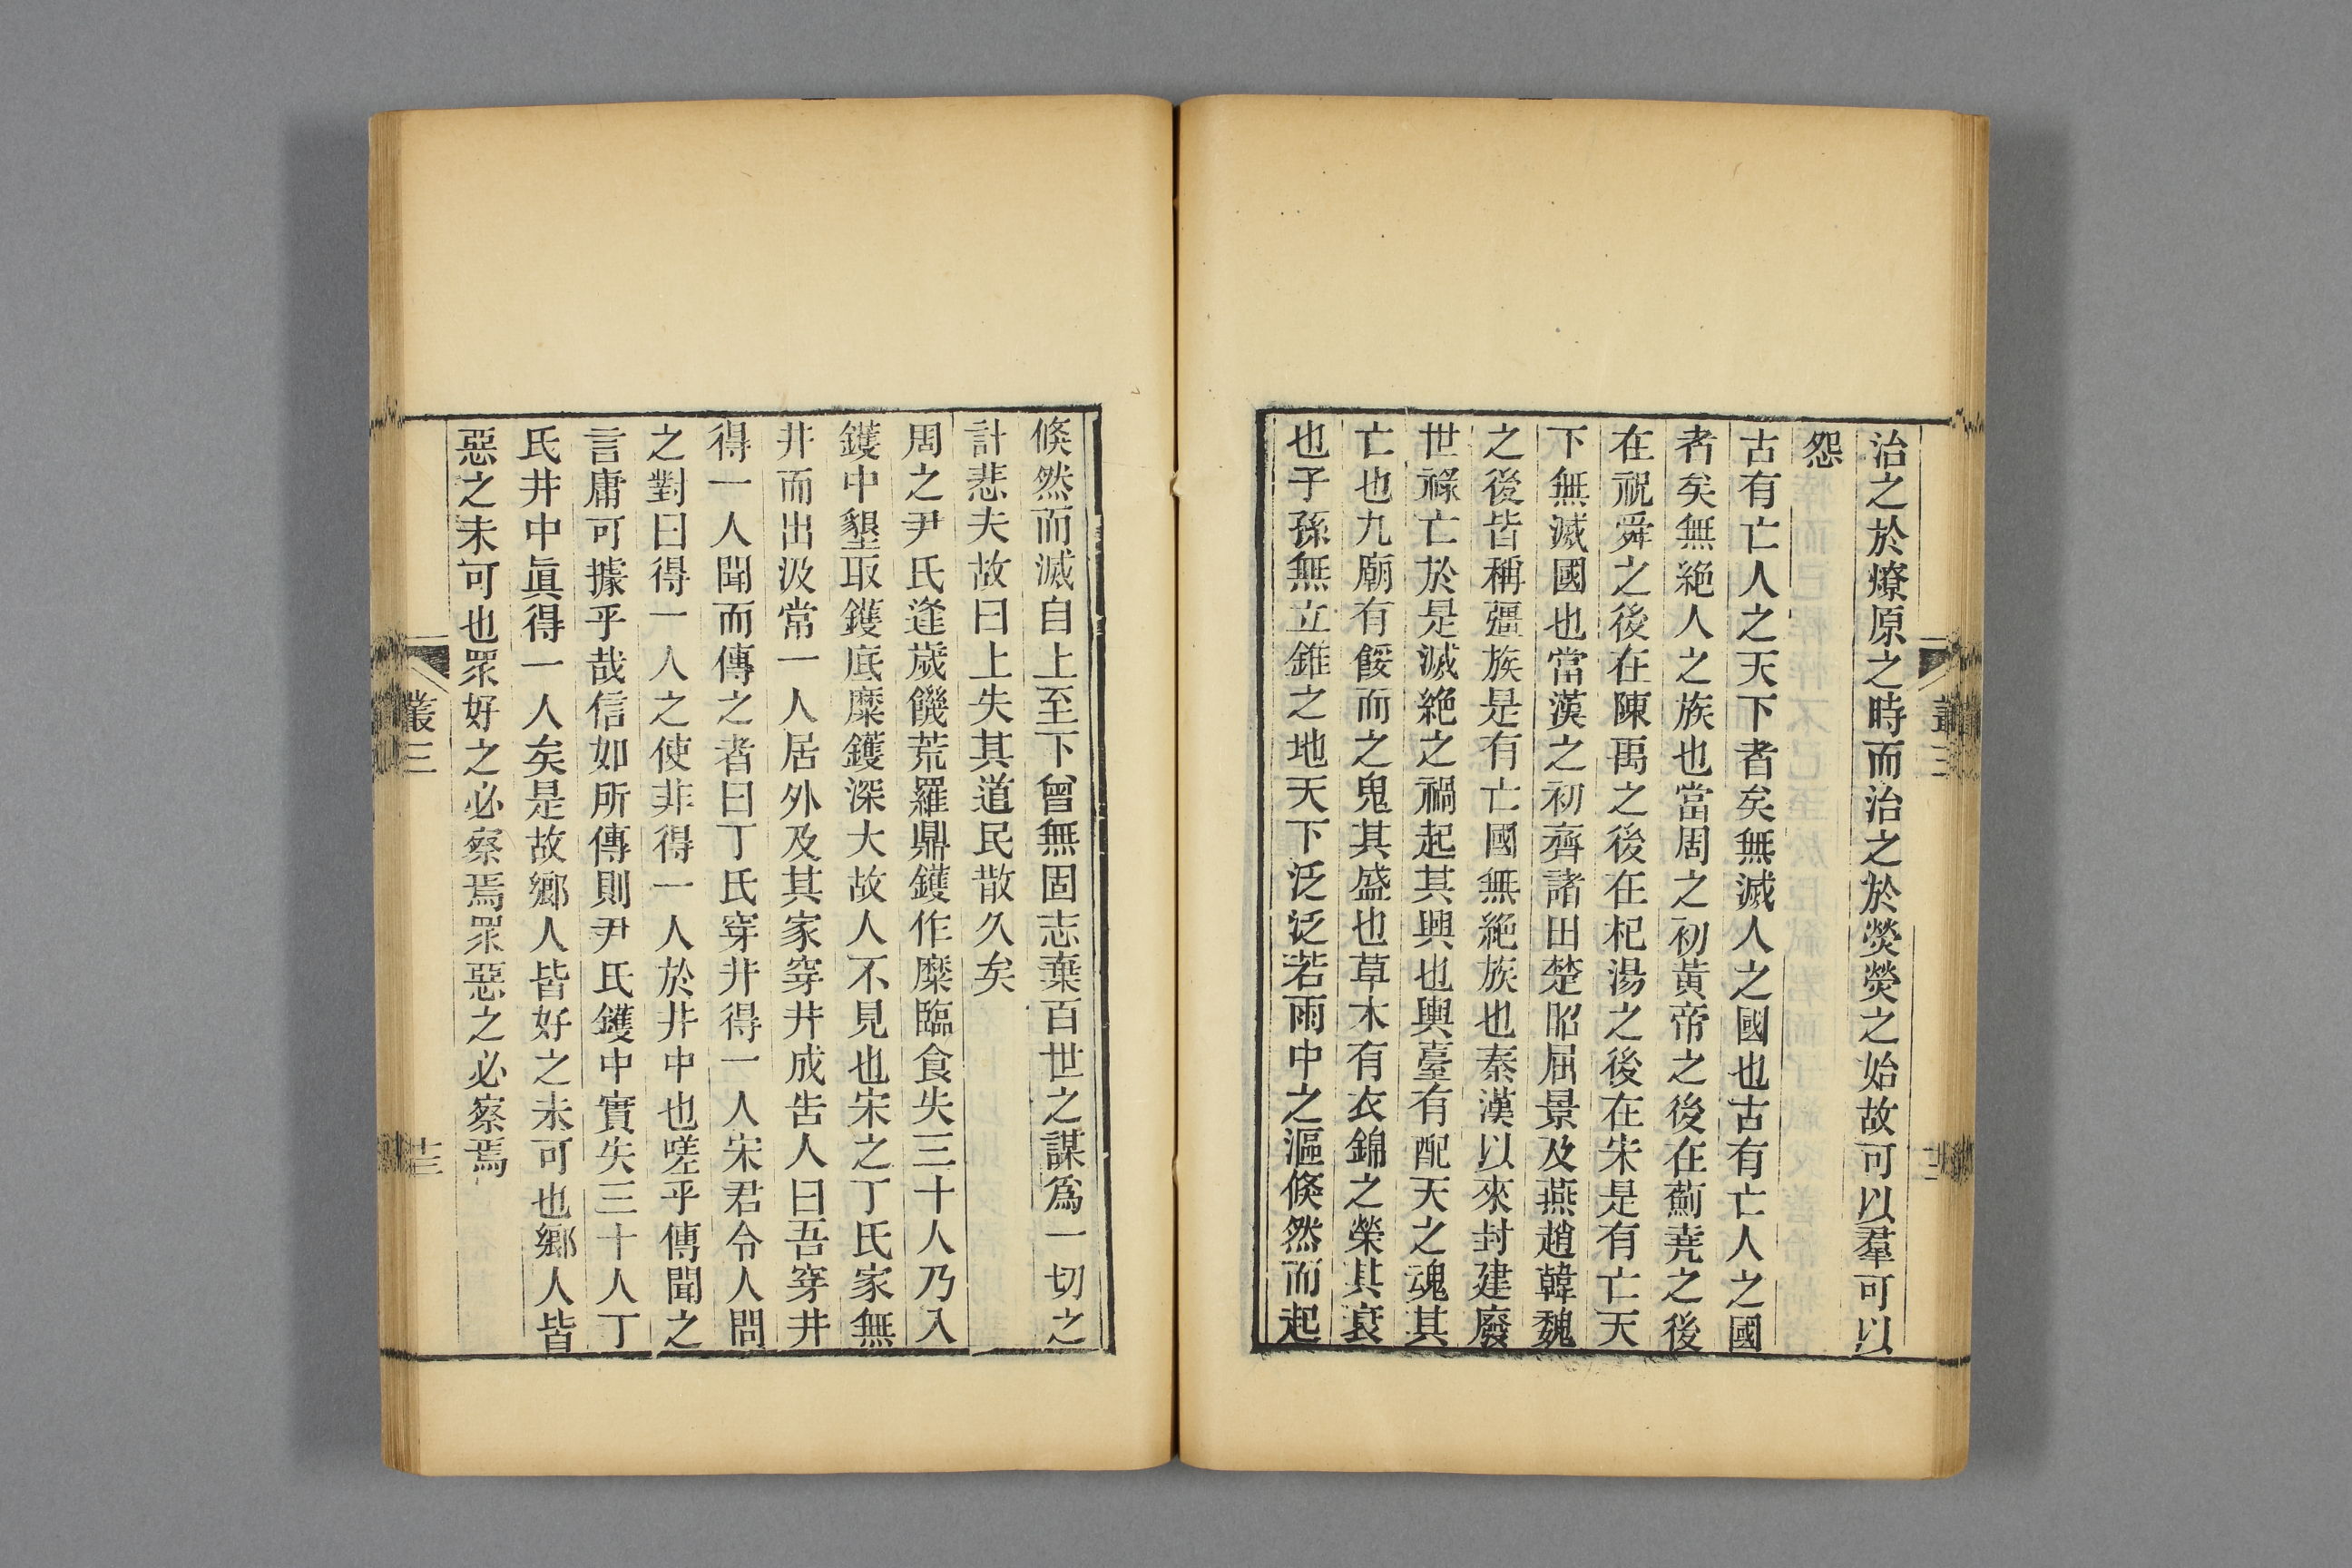 治之於燎原之時而治之於熒熒之始故可以羣可以
怨
古有亡人之天下者矣無滅人之國也古有亡人之國
者矣無絕人之族也當周之初黃帝之後在薊堯之後
在祝舜之後在陳禹之後在杞湯之後在宋是有亡天
下無滅國也當漢之初齊諸田楚昭屈景及燕趙韓魏
之後皆稱彊族是有亡國無絕族也秦漢以來封建廢
世祿亡於是滅絕之禍起其興也輿臺有配天之魂其
亡也九廟有餒而之鬼其盛也草木有衣錦之榮其衰
也子孫無立錐之地天下泛泛若雨中之漚倏然而起
倏然而滅自上至下曾無固志棄百世之謀爲一切之
計悲夫故曰上失其道民散久矣
周之尹氏逢歲饑荒羅鼎鑊作糜臨食失三十人乃入
鑊中墾取鑊底糜鑊深大故人不見也宋之丁氏家無
井而出汲常一人居外及其家穿井成告人曰吾穿井
得一人聞而傳之者曰丁氏穿井得一人宋君令人問
之對曰得一人之使非得一人於井中也嗟乎傳聞之
言庸可據乎哉信如所傳則尹氏鑊中實失三十人丁
氏井中眞得一人矣是故鄉人皆好之未可也鄉人皆
惡之未可也眾好之必察焉眾惡之必察焉
叢三